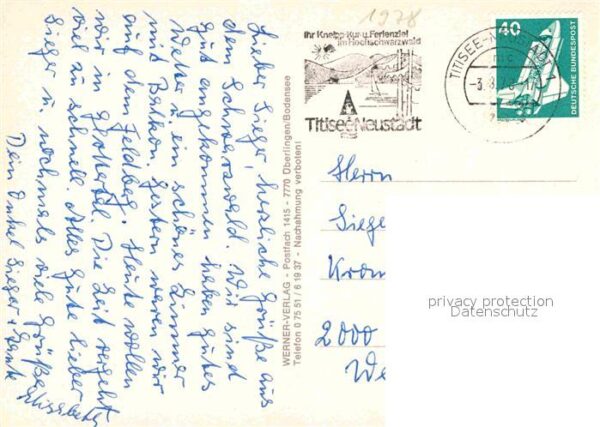 1978
Ihr Kneipp-Kur-u. Ferienziel
im Hochschwarzwald
Titisee-Neustadt
TITISEE-NEUSTADT
mc
40
DEUTSCHE BUNDESPOST
Lieber Sieger, herzliche Grüße aus
dem Schwarzwald. Wir sind
gut angekommen haben gutes
Wetter u. ein schönes Zimmer
mit Balkon. Gestern waren wir
auf dem Feldberg. Heute wollen
wir in Die Zeit vergeht
viel zu schnell. Alles Gute lieber
Sieger u. nochmals viele Grüße
Dein Onkel Sieger + Tante Elisabeth
WERNER-VERLAG - Postfach 1415 - 7770 Überlingen/Bodensee
Telefon 0 75 51 / 6 19 37 - Nachahmung verboten!
Herrn
Siege
Krom
2000
We
privacy protection
Datenschutz